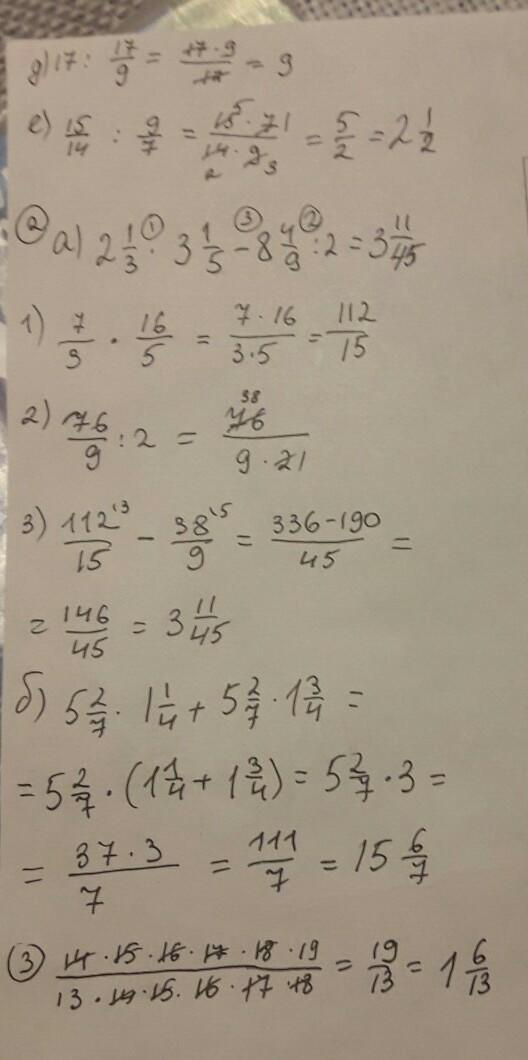 д) 17 : 17/9 = 17·9/17 = 9
е) 15/14 : 9/7 = 15⁵·7 1/14·9 2 3 = 5/2 = 2 1/2
② а) 2 1/3 ·① 3 1/5 -③ 8 4/9 :② 2 = 3 11/45
1) 7/3 · 16/5 = 7·16/3·5 = 112/15
2) 76/9 : 2 = 76 38/9·2 1
3) 112 ˡ³/15 - 38 ˡ⁵/9 = 336-190/45 =
= 146/45 = 3 11/45
б) 5 2/7 · 1 1/4 + 5 2/7 · 1 3/4 =
= 5 2/7 · (1 1/4 + 1 3/4) = 5 2/7 · 3 =
= 37·3/7 = 111/7 = 15 6/7
③ 14·15·16·17·18·19/13·14·15·16·17·18 = 19/13 = 1 6/13